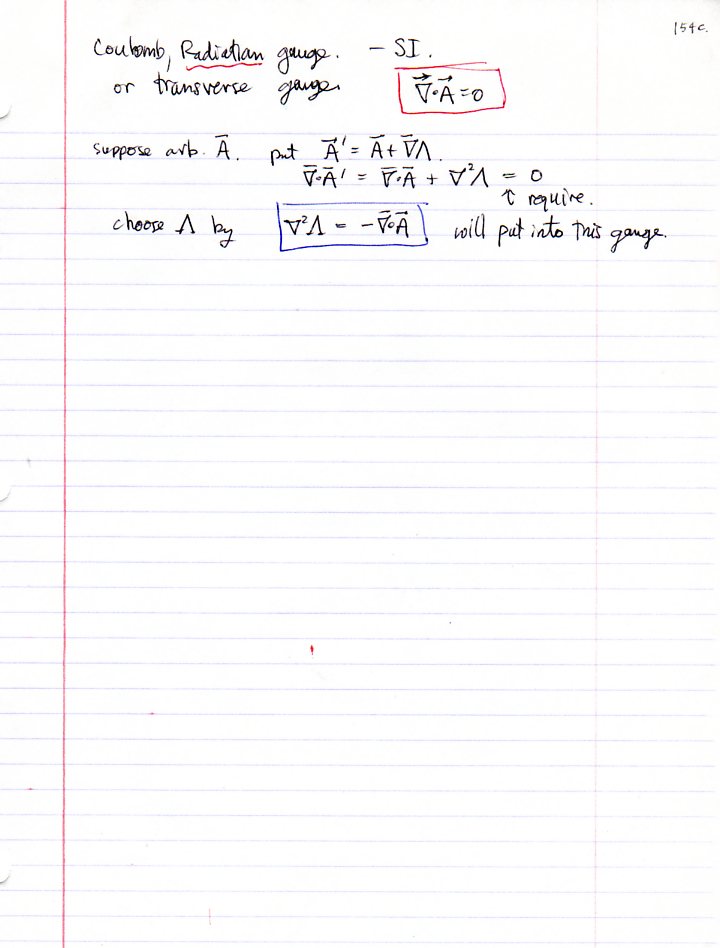 154c.
Coulomb, Radiation gauge. – SI.
or transverse gauge. ∇⃗·A⃗=0
suppose arb. A̅. put A⃗' = A̅ + ∇̅Λ.
∇̅·A̅' = ∇̅·A̅ + ∇²Λ = 0
↑ require.
choose Λ by ∇²Λ = -∇̅·A⃗ will put into this gauge.